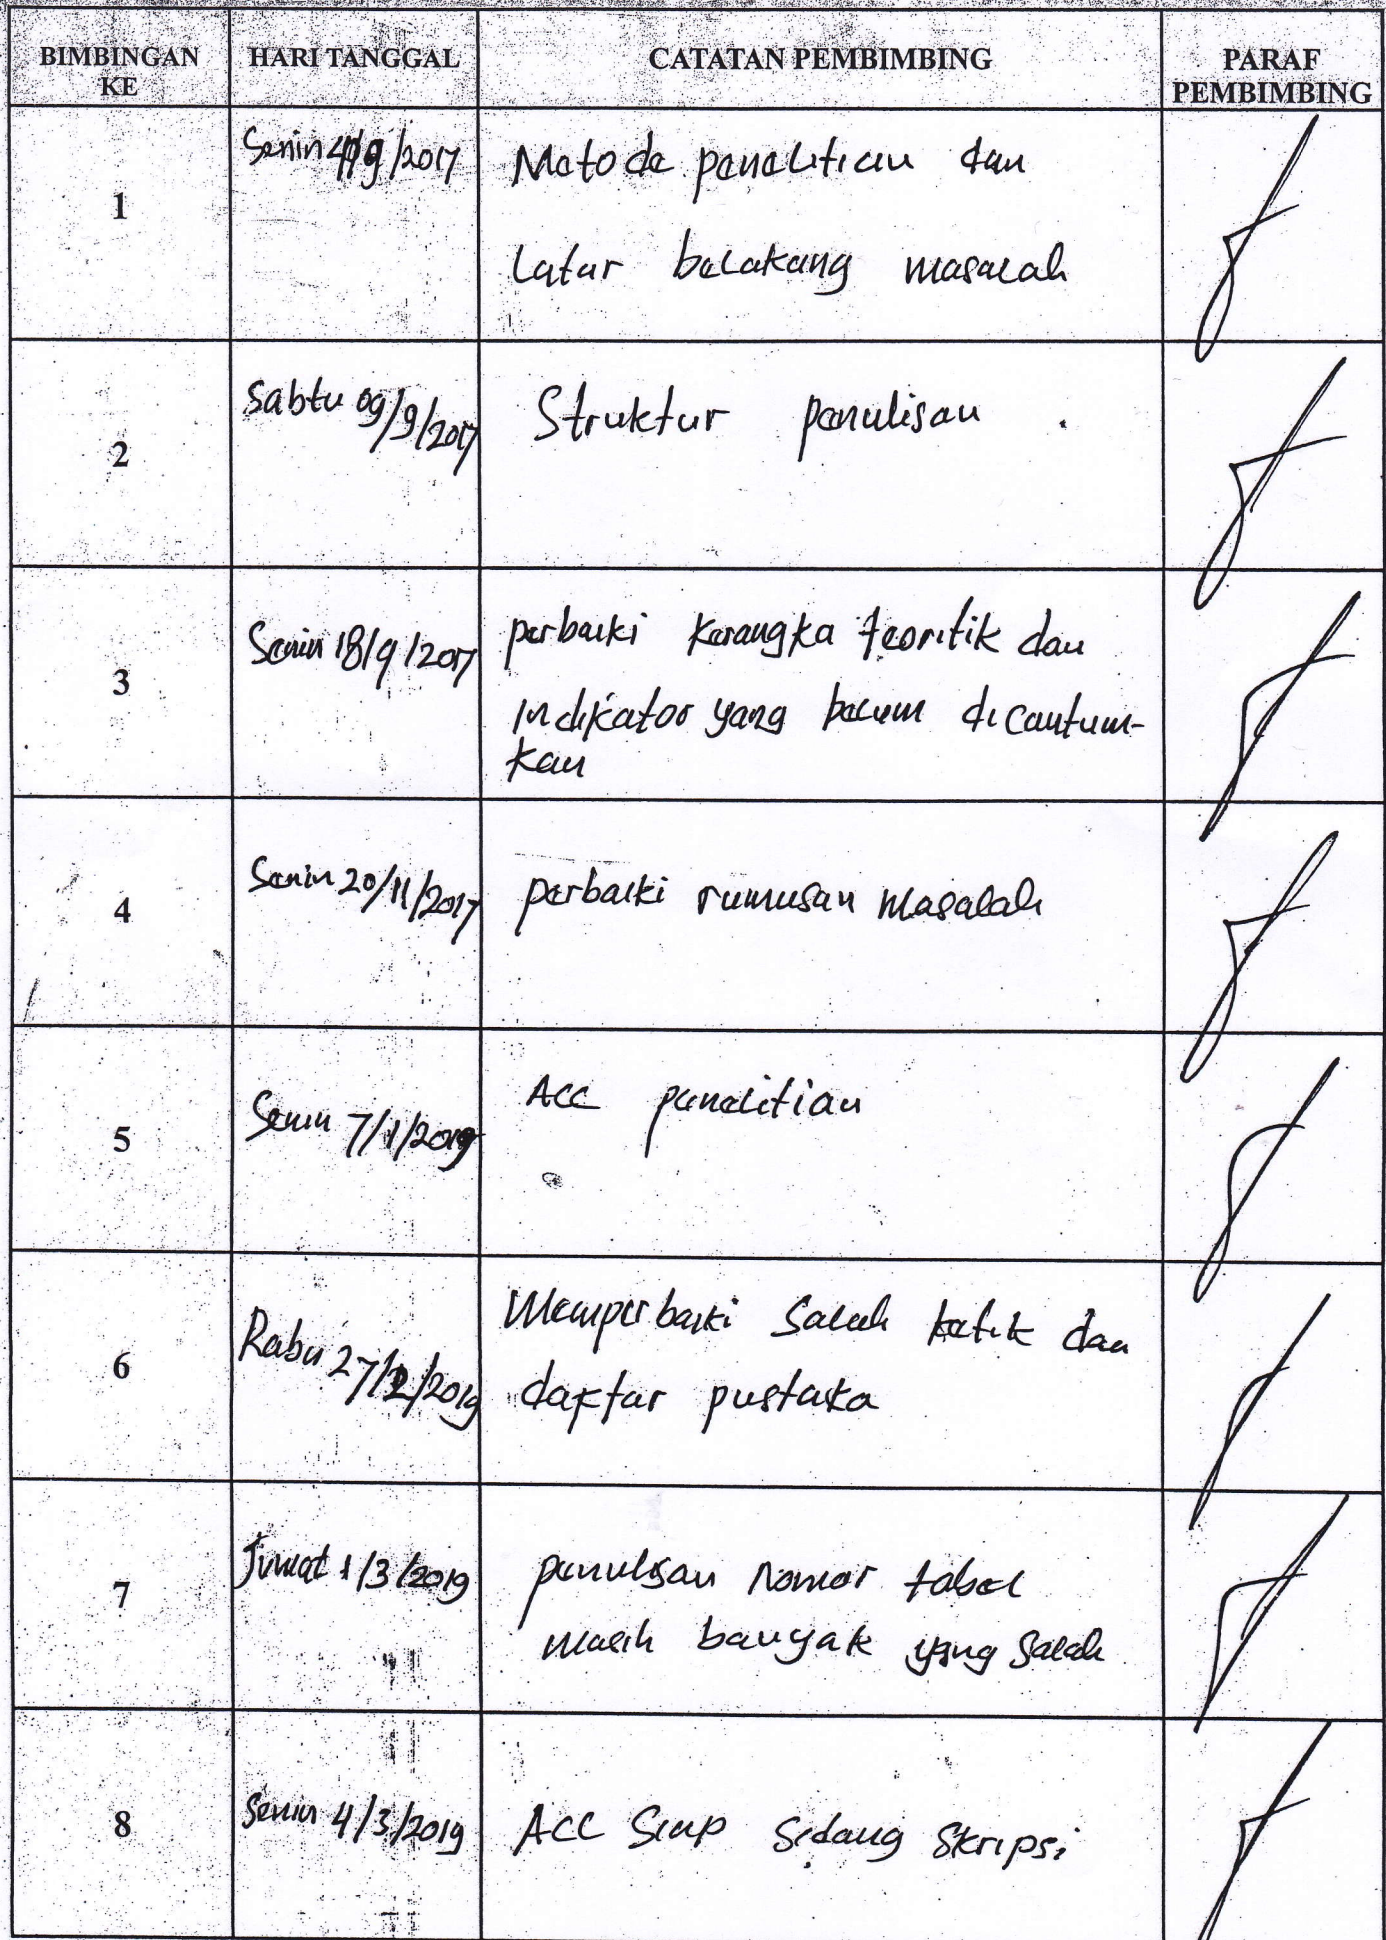 BIMBINGAN KE HARI TANGGAL CATATAN PEMBIMBING PARAF PEMBIMBING
1 Senin 4/9/2017 Metode penelitian dan
latar belakang masalah
2 Sabtu 09/9/2017 Struktur penulisan
3 Senin 18/9/2017 perbaiki kerangka teoritik dan
indikator yang belum dicantum-
kan
4 Senin 20/11/2017 perbaiki rumusan masalah
5 Senin 7/1/2019 Acc penelitian
6 Rabu 27/2/2019 Memperbaiki salah ketik dan
daftar pustaka
7 Jumat 1/3/2019 penulisan nomor tabel
masih banyak yang salah
8 Senin 4/3/2019 Acc Siap sidang skripsi